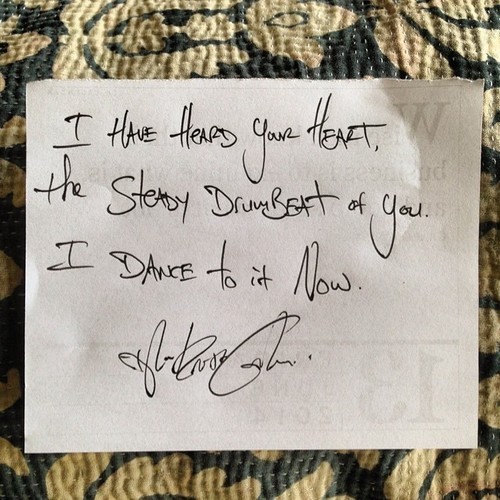 I HAVE HEARD your HEART,
the STEADY DrumBEAT of you.
I DANCE to it Now.